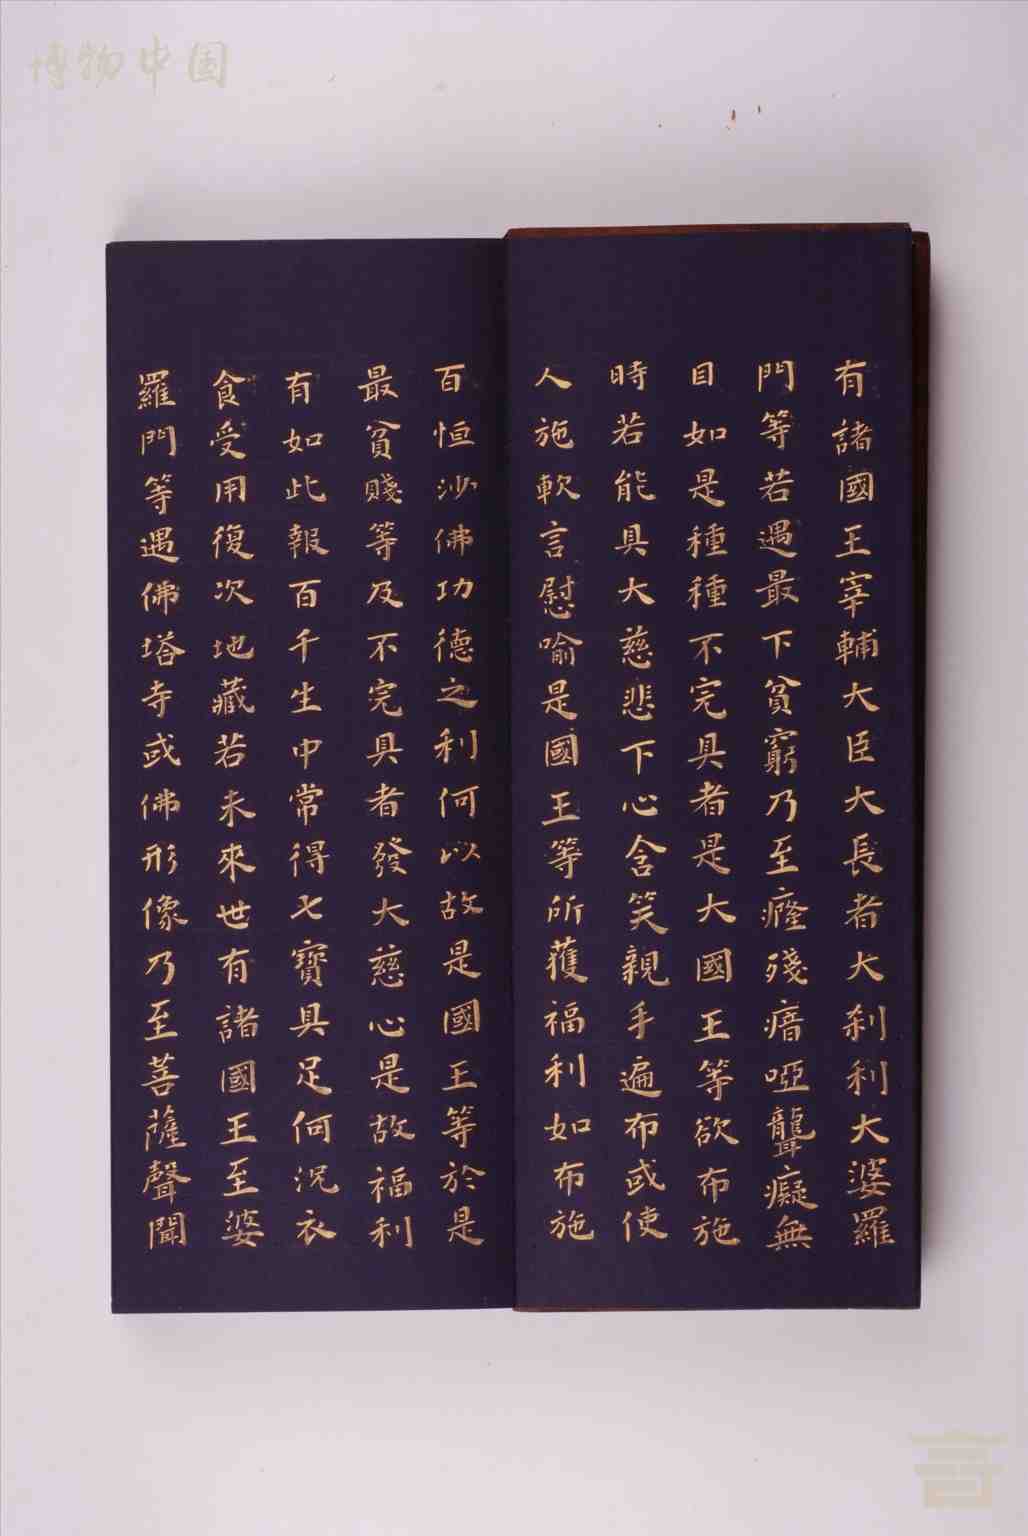 博物中国
有諸國王宰輔大臣大長者大刹利大婆羅
門等若遇最下貧窮乃至癃殘瘖啞聾癡無
目如是種種不完具者是大國王等欲布施
時若能具大慈悲下心含笑親手遍布或使
人施軟言慰喻是國王等所獲福利如布施
百恒沙佛功德之利何以故是國王等於是
最貧賤等及不完具者發大慈心是故福利
有如此報百千生中常得七寶具足何況衣
食受用復次地藏若未來世有諸國王至婆
羅門等遇佛塔寺或佛形像乃至菩薩聲聞